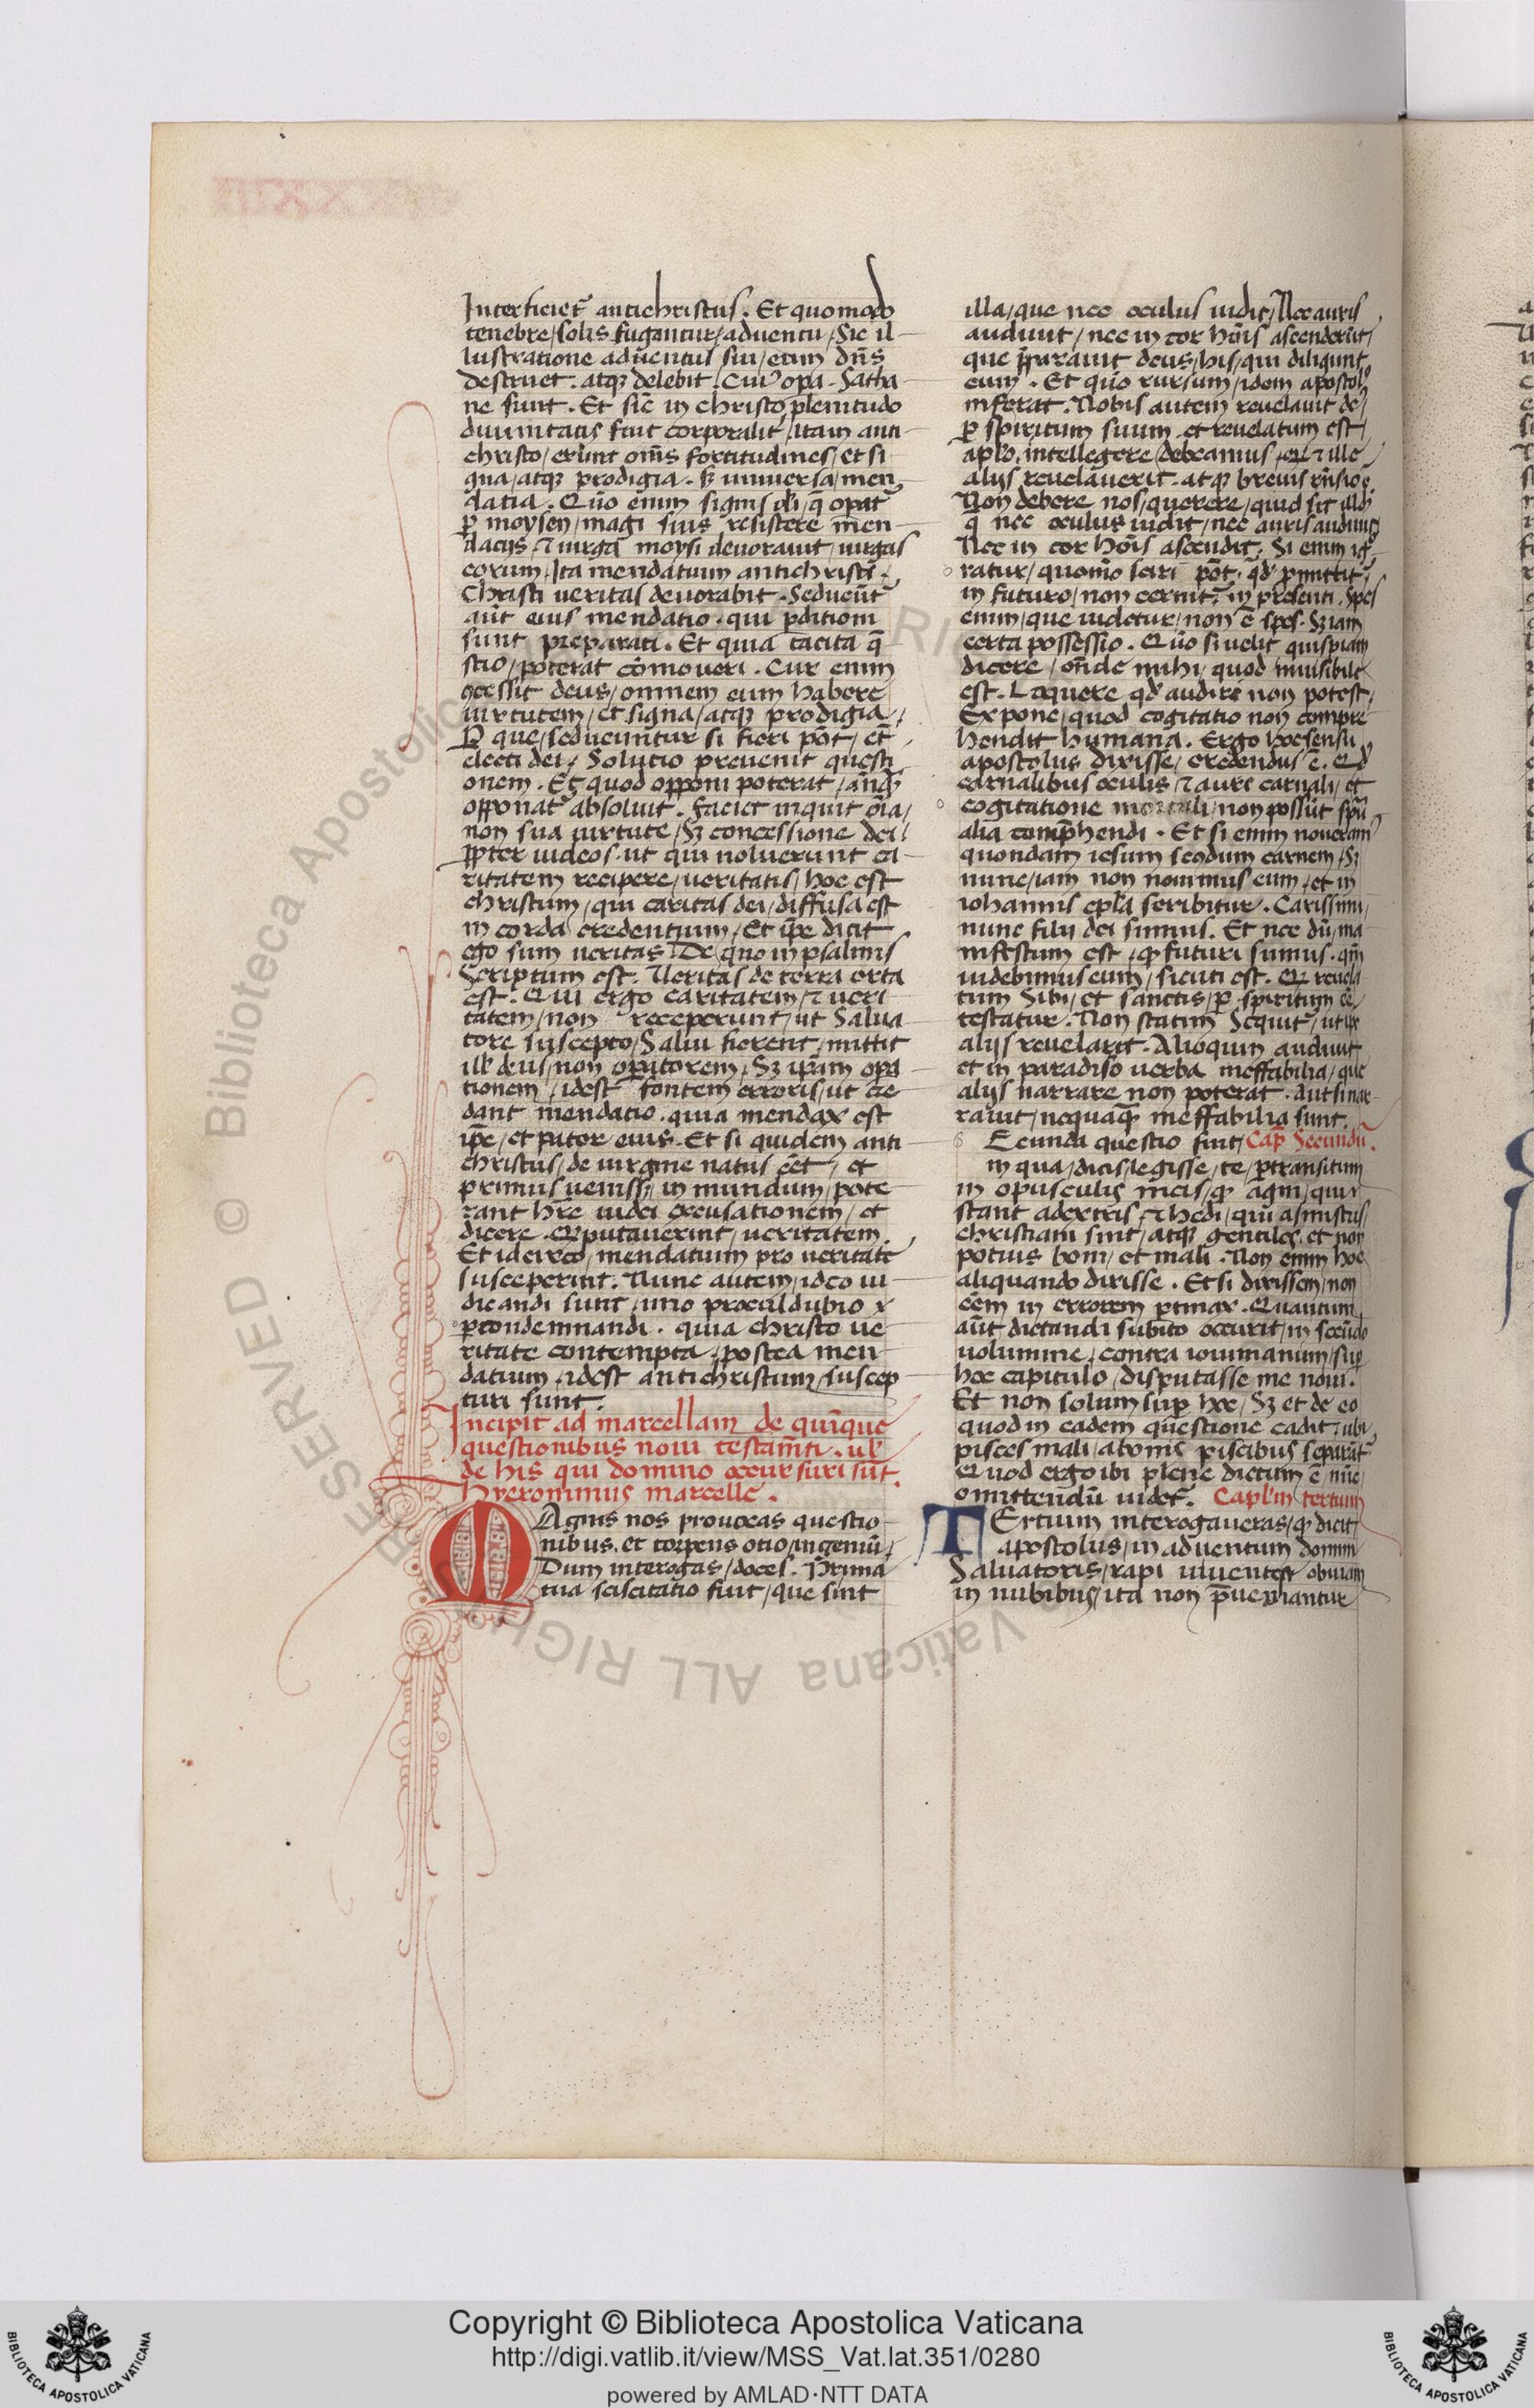 Interficiet᷑ antichristus. Et quomodo
tenebre/solis fugantur/aduentu/Sic il-
lustratione aduentus sui/eum dn̄s
destruet. atqꝫ delebit. Cui᷒ opa. Satha-
ne sunt. Et sic in christo plenitudo
diuinitatis fuit corporalit᷑/itain anti-
christo/erunt om̄s fortitudines/et si
gna/atqꝫ prodigia. sꝫ uniuersa/men
datia. Quō enim signis dei/q̄ opat᷑
ꝑ moysen/magi suis resistere men-
daciis ⁊ uirga moysi deuorauit/uirgas
eorum/Ita mendatium antichristi.
Christi ueritas deuorabit. Seducēt᷑
aūt eius mendatio. qui ꝑditiom
sunt preparati. Et quia tacita q̄
stio/poterat cōmoueri. Cur enim
cessit deus/omnem eum habere
uirtutem/et signa/atqꝫ prodigia/
Ꝑ que/seducuntur si fieri pōt/et̄
electi dei/Solutio preuenit questi
onem. Et quod opponi poterat/anq̄ꝫ
opponat᷑ absoluit. faciet inquit oīa/
non sua uirtute/Sꝫ concessione dei/
ꝓpter iudeos. ut qui noluerunt ca-
ritatem recipere/ueritatis/hoc est
christum/qui caritas dei/diffusa est
in corda credentium/Et ip̄e dicit
ego sum ueritas. De quo in psalmis
Scriptum est. Ueritas de terra orta
est. Qui ergo caritatem/⁊ ueri-
tatem/non receperunt/ut Salua
tore suscepto/Salui fierent/mittit
ill' deus/non opatorem/Sꝫ ipam opa-
tionem/idest fontem erroris/ut cre
dant mendatio. quia mendax est
ip̄e/et pater eius. Et si quidem anti
christus/de uirgine natus eēt/et
primus uenissꝫ in mundum/pote-
rant hr̄e iudei excusationem/et
dicere. Qꝫ putauerint/ueritatem.
Et idcirco/mendatium pro ueritate
susceperint. Nunc autem/ideo iu-
dicandi sunt/imo procul dubio
ꝑcondemnandi. quia christo ue
ritate contempta/postea men-
datium/idest antichristum/suscep
turi sunt.
Incipit ad marcellam de quinque
questionibus noui testam̄ti. ul'
de his qui domino occursuri sūt.
Hyeronimus marcelle.
MAgnis nos prouocas questio-
nibus. et torpens otio/ingeniū/
Dum interogas/doces. Prima
tua sciscitatio fuit/que sint
illa/que nec oculus uidit/Nec auris
audiuit/nec in cor hoīs ascenderūt/
que p̄parauit deus/his/qui diligunt
eum. Et quō rursum/idem apostol᷒
inferat. Nobis autem reuelauit de᷒/
ꝑ spiritum suum. et reuelatum est/
aplō. intellegere/debeamus/Qꝫ ⁊ ille
alijs reuelauerit. atqꝫ breuis rn̄sio ē.
Non debere nos/querere/quid sit illud
q̄ nec oculus uidit/nec auris audiuit/
Nec in cor hoīs ascendit. Si enim ig-
ratur/quomō sciri pōt. qd̄ ꝓmittit᷑
in futuro/non cernit᷑ in presenti. Spes
enim/que uidetur/non ē spes. Sꝫ iam
certa possessio. Quō si uelit quispiam
dicere/ōnde mihi/quod inuisibile
est. Loquere qd̄ audire non potest/
Expone/quod cogitatio non compre
hendit humana. Ergo hoc sensu
apostolus dixisse/credendus ē. Qd̄
carnalibus oculis/⁊ aure carnali/et
cogitatione mortali/non possūt spū
alia comp̄hendi. Et si enim noueram᷒
quondam iesum secūdum carnem/Sꝫ
nunc/iam non nouimus eum/et in
iohannis epl'a scribitur. Carissimi/
nunc filij dei sumus. Et nec dū/ma
nifestum est/qꝫ futuri sumus. qm̄
uidebimus eum/sicuti est. Qꝫ reuela
tum Sibi/et sanctis/ꝑ spiritum dei
testatur. Non statim Sequit᷑/ut ip̄e
alijs reuelarit. Alioquin audiuit
et in paradiso uerba ineffabilia/que
alijs narrare non poterat. Aut si nar-
rauit/nequaq̄ꝫ ineffabilia sunt.
s Ecunda questio fuit/Cap̄ Secundū.
in qua/dicis/legisse/te/ꝑtransitum
in opusculis meis/qꝫ agni/qui
stant adextris/⁊ hedi/qui asinistris/
christiani sint/atqꝫ gentiles. et non
potius boni/et mali. Non enim hoc
aliquando dixisse. Et si dixissem/non
eēm in errorem ꝑtinax. Quantum
aūt dictandi subito occurit/in secūdo
uolumine/contra iouinianum/suꝑ
hoc capitulo/disputasse me noui.
Et non solum suꝑ hoc/Sꝫ et de eo
quod in eadem questione cadit/ubi
pisces mali/abonis piscibus separāt᷑
Quod ergo ibi plene dictum ē/nūc
omittendū uidet᷑. Capl'm tertium
TErtium interogaueras/qꝫ dicit
apostolus/in aduentum domini
Saluatoris/rapi uiuentes obuiam
in nubibus/ita non p̄ueniantur
Copyright © Biblioteca Apostolica Vaticana
http://digi.vatlib.it/view/MSS_Vat.lat.351/0280
powered by AMLAD·NTT DATA